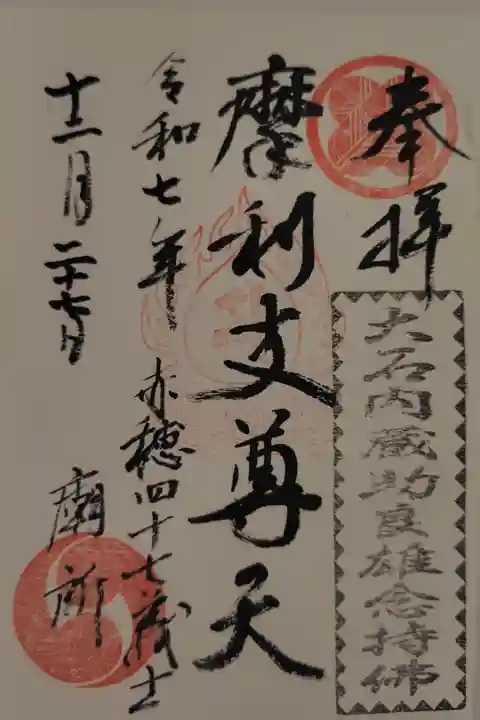 奉拝
大石内蔵助良雄念持佛
摩利支尊天
令和七年 赤穂四十七義士
十二月二十七日 廟所